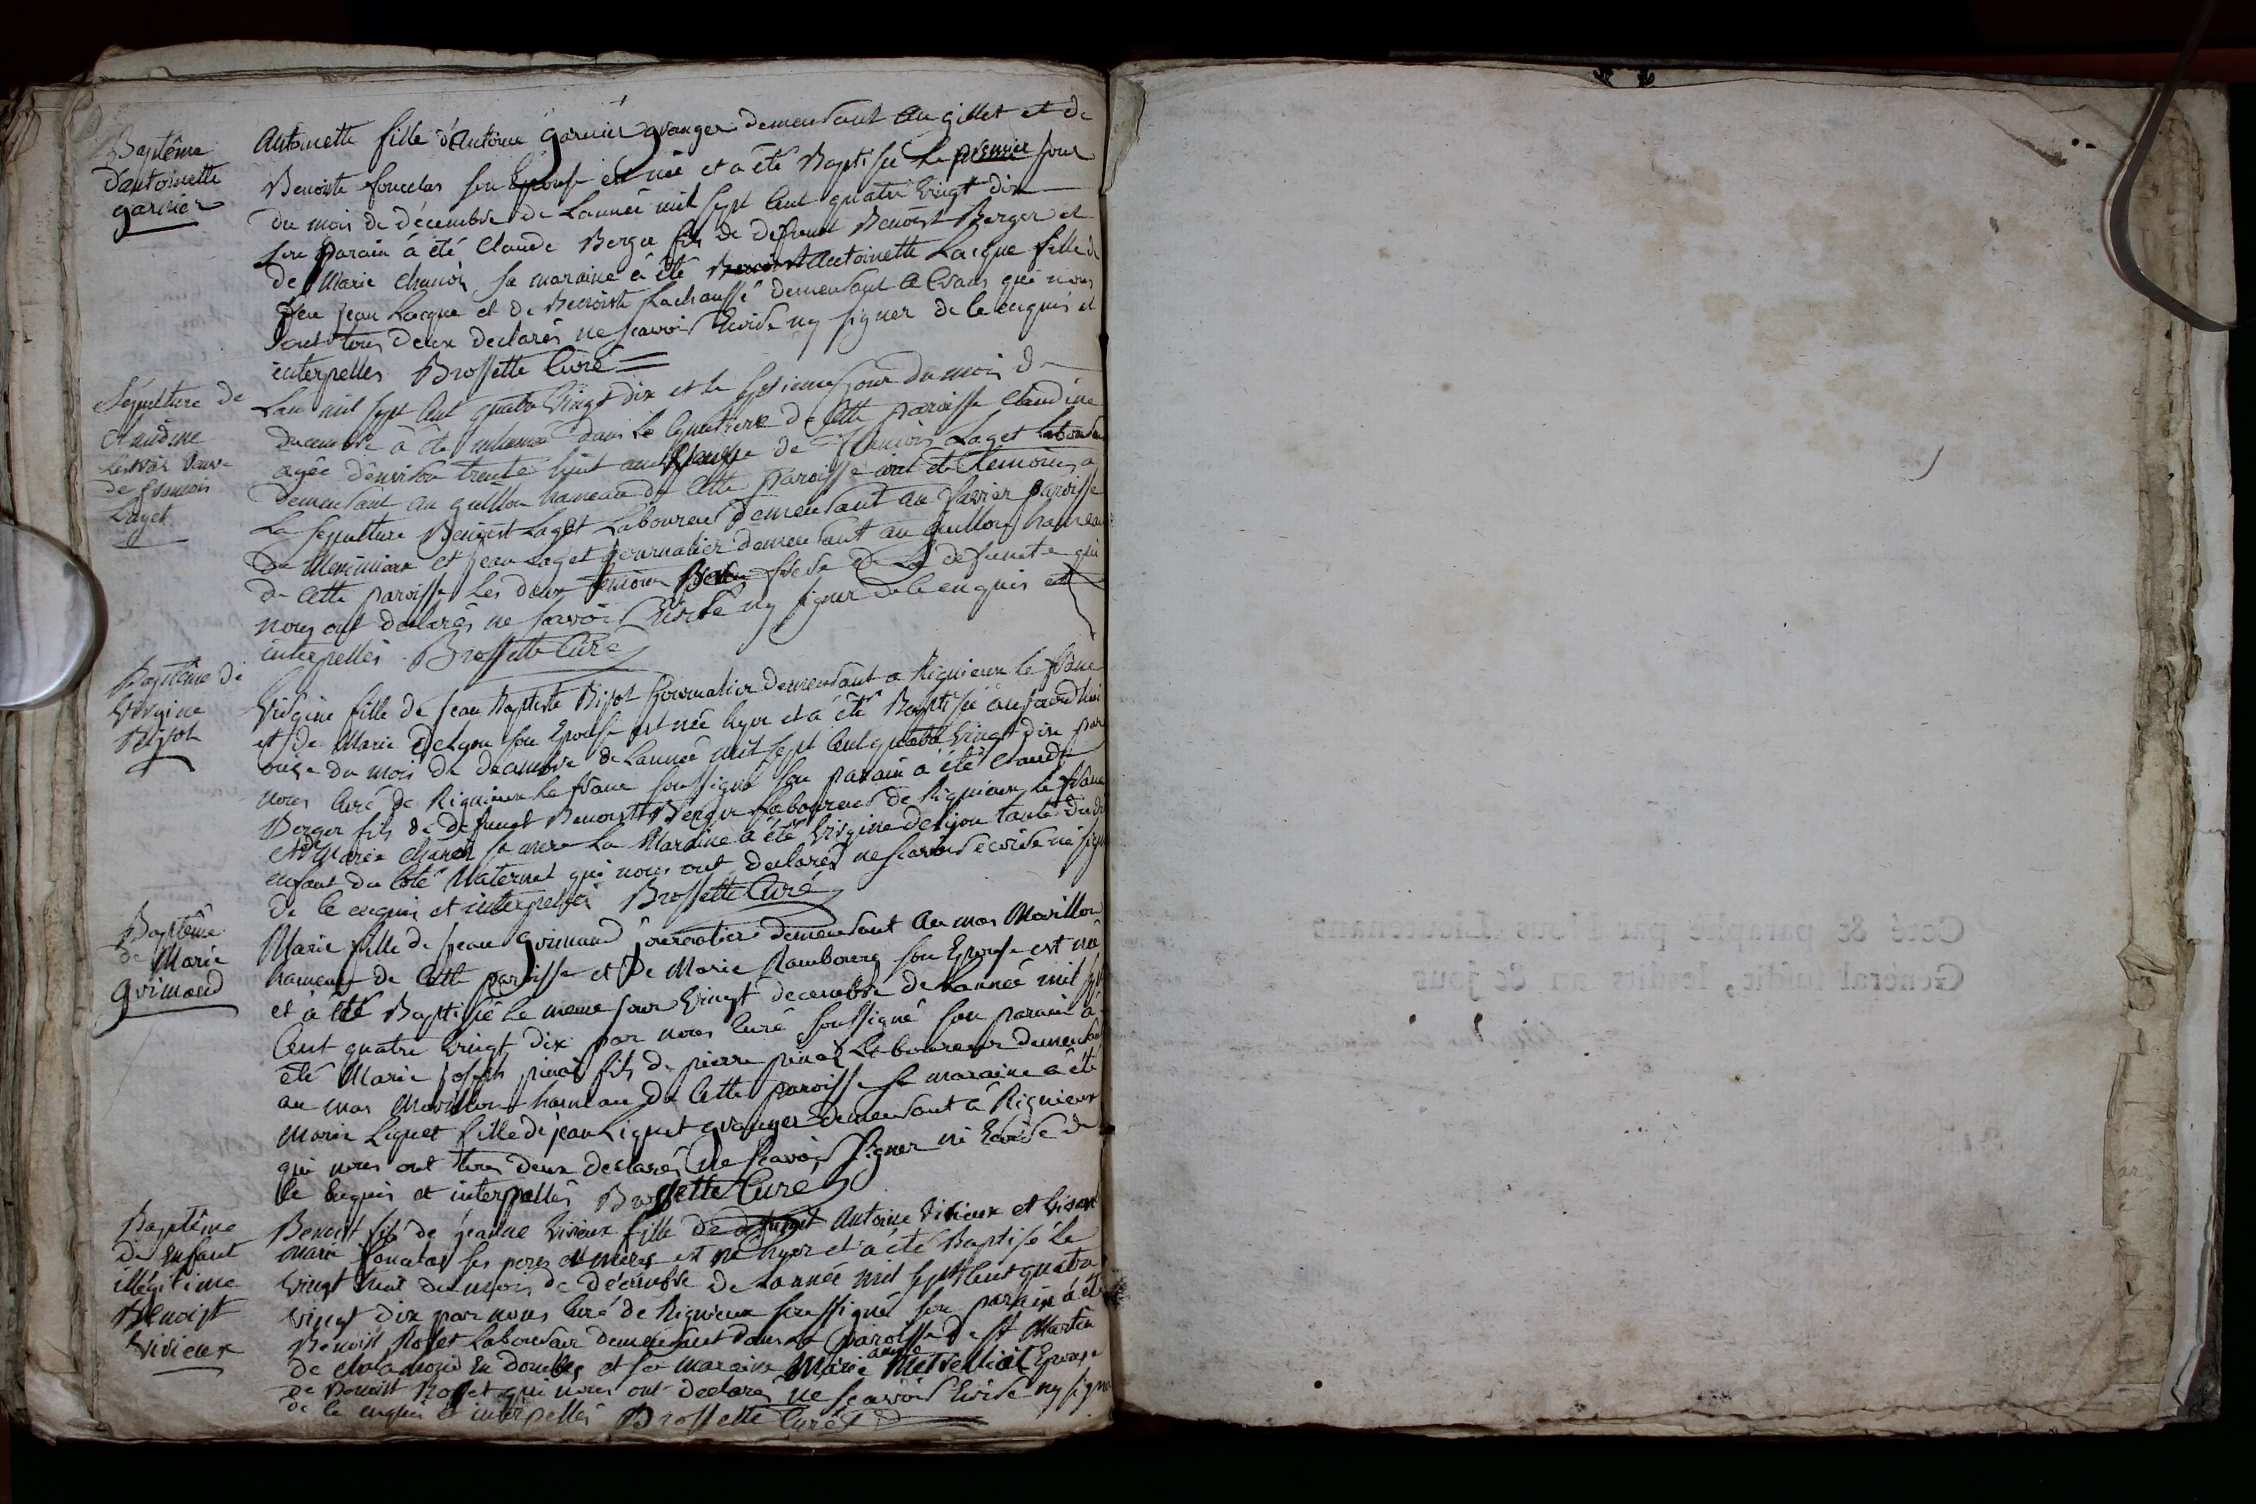 Baptême
d'antoinette
garnier
Antoinette fille d'Antoine garnier granger demeurant au gillet et de
Benoite foucelas son Epouse est née et a été Baptisée le premier jour
du mois de décembre de L'année mil sept Cent quatre vingt dix
son parain à été Claude Berger fils de defunt Benoist Berger et
de Marie charion sa maraine à été Antoinette Lacque fille de
feu jean Lacque et de Benoiste Lachausse demeurant a Crans qui nous
ont tous deux declarés ne scavoir Ecrire ny signer de ce enquis et
interpelles Brossette Curé
Sépulture de
Claudine
veuve
de francois
Laget
L'an mil sept Cent quatre vingt dix et le septieme jour du mois de
decembre à été inhumée dans le Cymetiere de cette paroisse Claudine
agée d'environ trente huit ans de francois Laget
demeurant au guillon hameau de cette paroisse ont été temoins a
La sepulture Benoist Laget Laboureur demeurant au Javier paroisse
de Meximieux et jean Laget journalier demeurant au guillon hameau
de cette paroisse les deux temoins frere de La defunte qui
nous ont declarés ne scavoir Ecrire ny signer de ce enquis et
interpellés Brossette Curé
Baptême de
Virgine
Bizot
Virgine fille de jean Baptiste Bizot journalier demeurant a Rignieux le franc
et de Marie Delyon son Epouse est née hyer et a été Baptisée aujourd'hui
onze du mois de decembre de L'année mil sept Cent quatre vingt dix par
nous Curé de Rignieux le franc soussigné son parain à été Claude
Berger fils de defunct Benoist Berger Laboureur de Rignieux le franc
et de Marie charion sa mere La Maraine à été Virgine Delyon tante du dit
enfant du Coté Maternel qui nous ont declarés ne scavoir écrire ni signer
de ce enquis et interpellés Brossette Curé
Baptême
de Marie
Guimaud
Marie fille de jean Guimaud journalier demeurant au mas Morillon
hameau de cette paroisse et de Marie Rambourg son Epouse est née
et à été Baptisée le meme jour vingt decembre de L'année mil sept
Cent quatre vingt dix par nous Curé soussigné son parain à
été Marie joseph pinat fils de pierre pinat Laboureur demeurant
au mas Morillon hameau de cette paroisse sa maraine a été
Marie Liquet fille de jean Liquet granger demeurant à Rignieux
qui nous ont tous deux declarés ne scavoir signer ni Ecrire de
ce Enquis et interpellés Brossette Curé
Baptême
de Enfant
illégitime
Benoist
Vivieux
Benoist fils de jeanne Vivieux fille de defunct Antoine Vivieux et vivant
marie ses peres et meres est né hyer et à été Baptisé le
vingt huit du mois de décembre de L'année mil sept Cent quatre
vingt dix par nous Curé de Rignieux soussigné son parain à été
Benoist Rosset Laboureur demeurant dans La paroisse de St Martin
de chalamont En dombes et sa maraine Marie anne Epouse
de Benoist Rosset qui nous ont declarés ne scavoir Ecrire ny signer
de ce enquis et interpellés Brossette Curé
Coté & paraphé par Nous Lieutenant
Général susdit, lesdits an & jour